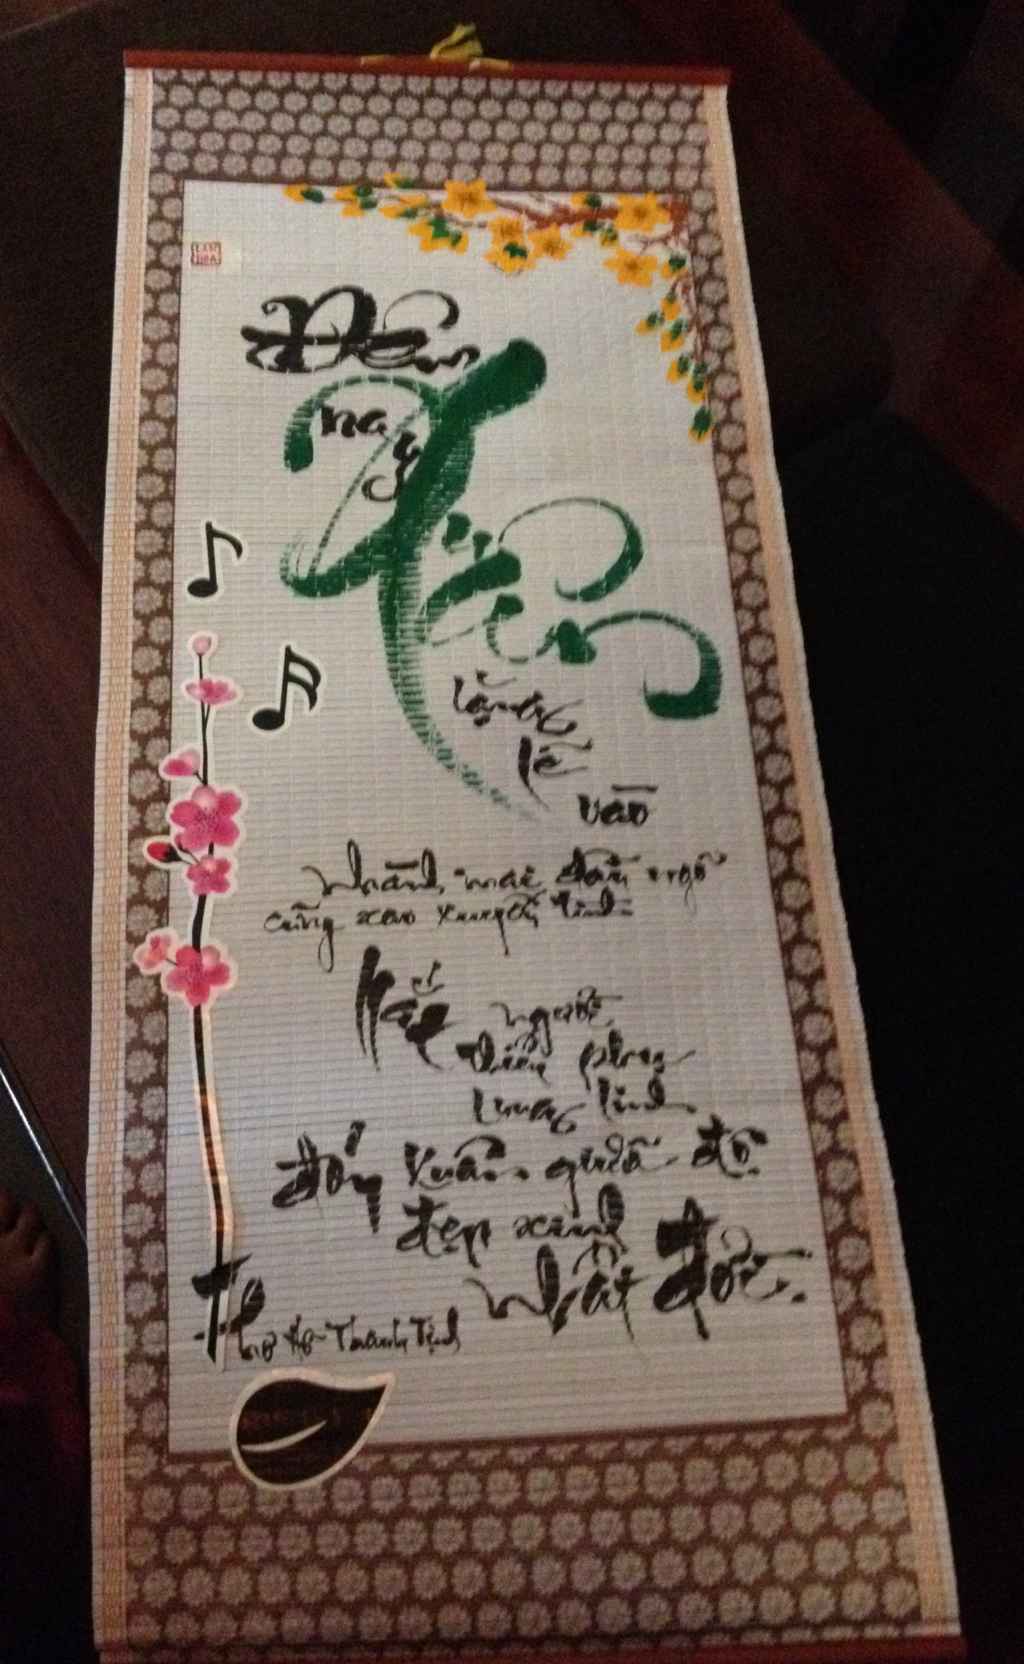 Đêm
nay
Xuân
lặng
lẽ
vào
Nhành mai đầu ngõ
cũng xao xuyến tình
Nấc
người
thiếu phụ
trung trinh
đón Xuân. giữa độ
đẹp xinh
nhất đời.
Thơ Hồ Thanh Tịnh